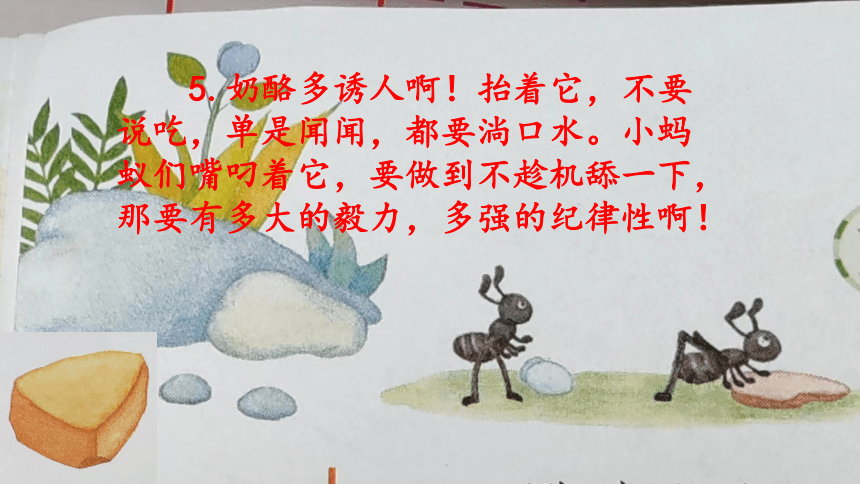 5.奶酪多诱人啊！抬着它，不要
说吃，单是闻闻，都要淌口水。小蚂
蚁们嘴叼着它，要做到不趁机舔一下，
那要有多大的毅力，多强的纪律性啊！